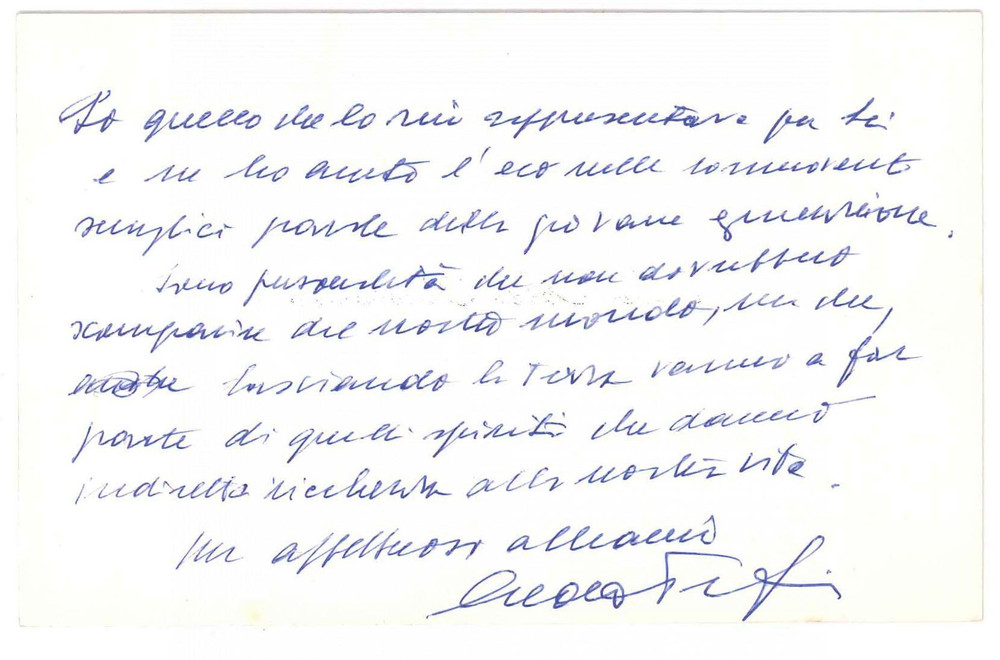 So quello che lo zio rappresentava per te
e ne ho avuto l'eco nelle commoventi
semplici parole della giovane generazione.
Sono personalità che non dovrebbero
scomparire dal nostro mondo, ma che,
lasciando la Terra vanno a far
parte di quelli spiriti che danno
indiretta ricchezza alla nostra vita.
Un affettuoso abbraccio